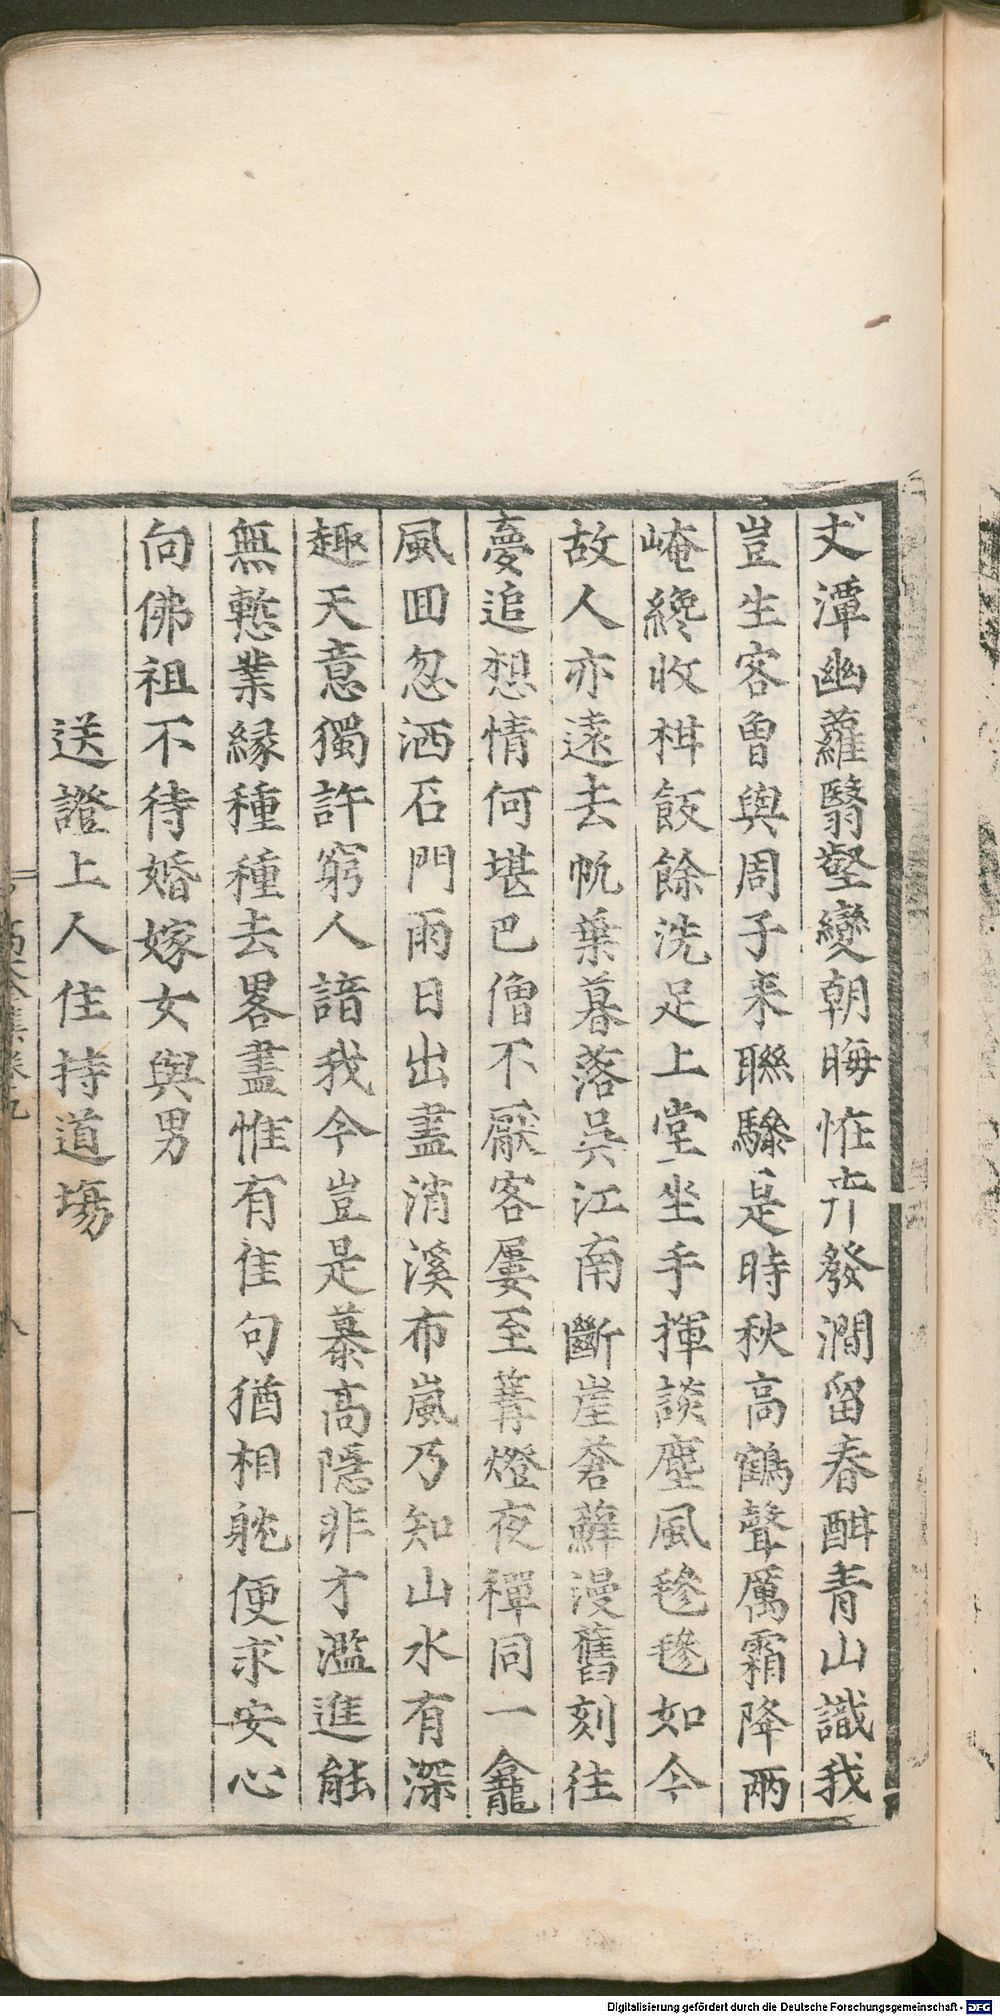 丈潭幽蘿翳壑變朝晦恠卉發澗留春酣青山識我
豈生客曾與周子來聯驂是時秋高鶴聲厲霜降兩
崦纔收柑飯餘洗足上堂坐手揮談麈風毿毿如今
故人亦遠去帆葉暮落吳江南斷崖蒼蘚漫舊刻往
夣追想情何堪巴僧不厭客屢至篝燈夜禪同一龕
風囬忽洒石門雨日出盡消溪布嵐乃知山水有深
趣天意獨許窮人諳我今豈是慕高隱非才濫進能
無慙業緣種種去畧盡惟有佳句猶相躭便求安心
向佛祖不待婚嫁女與男
送證上人住持道塲
集卷
八
Digitalisierung gefördert durch die Deutsche Forschungsgemeinschaft - DFG